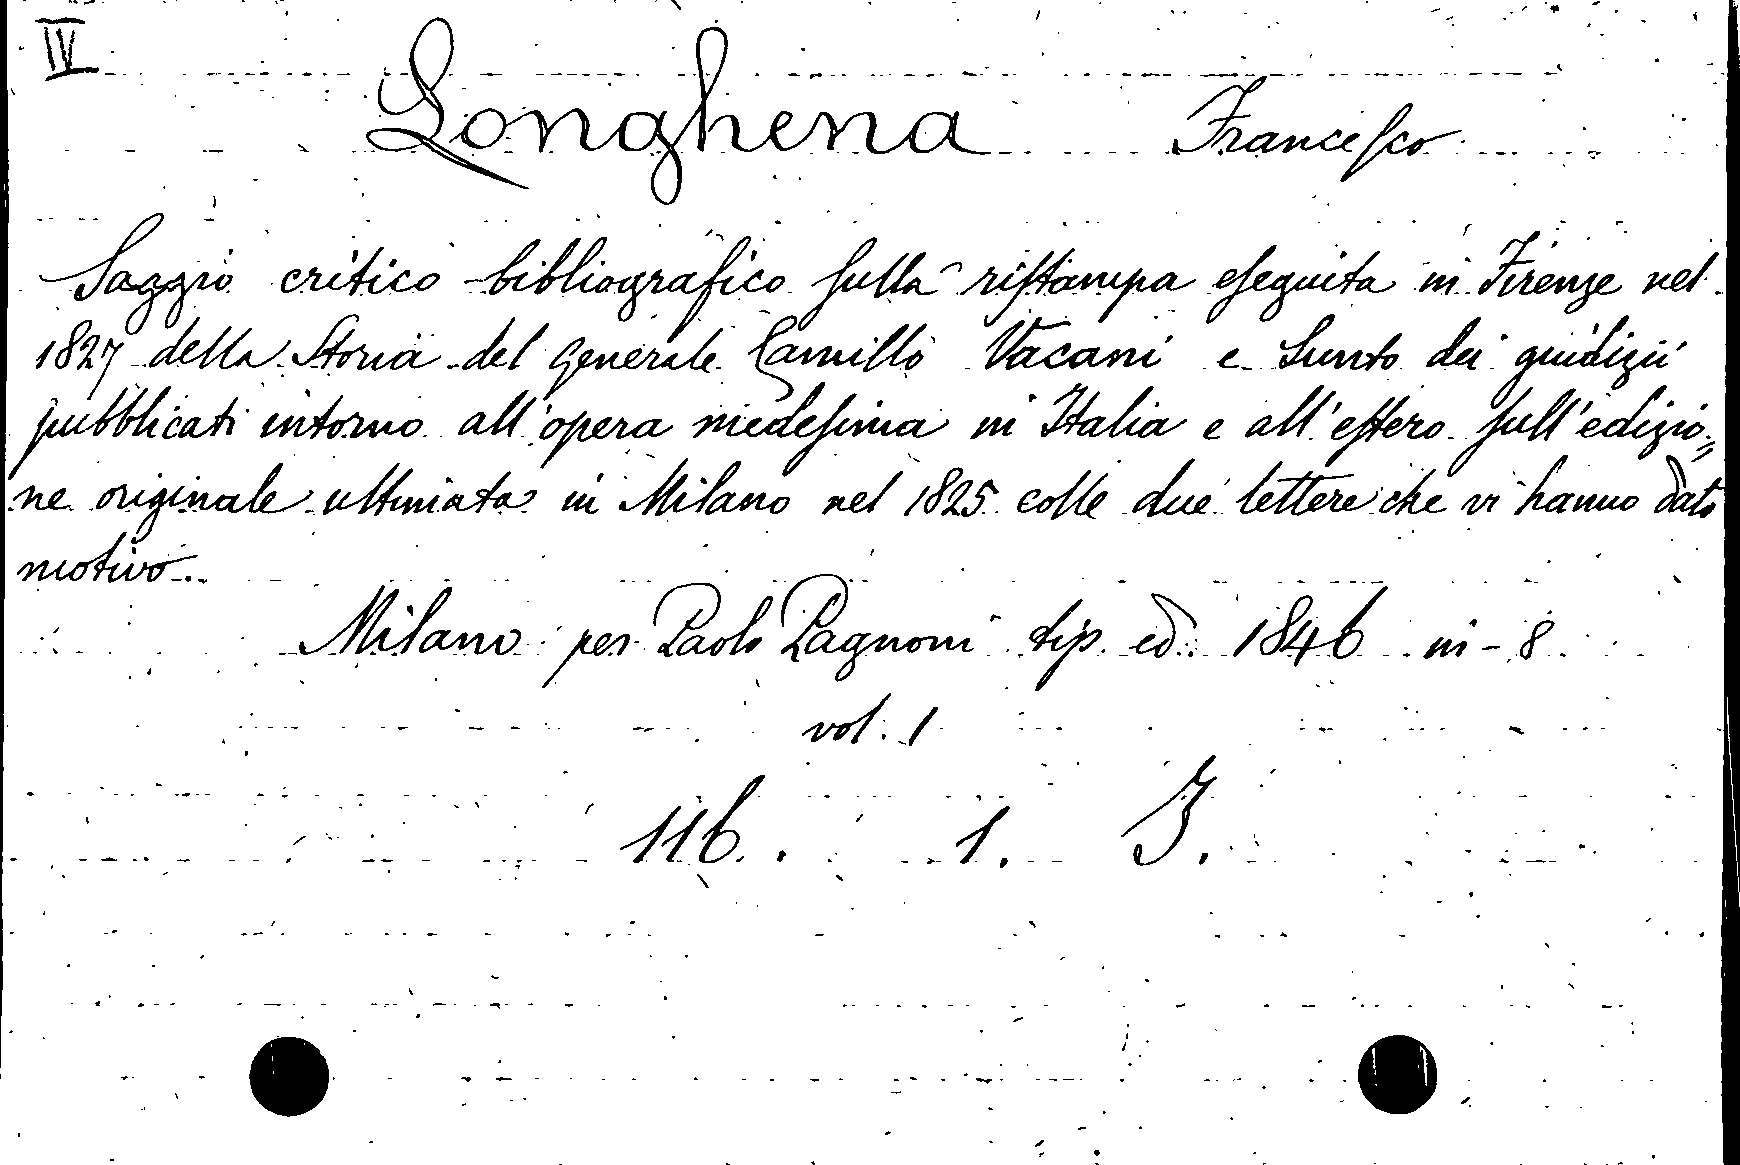 IV
Longhena Francesco
Saggio critico-bibliografico sulla ristampa eseguita in Firenze nel
1827 della Storia del Generale Camillo Vacani e Sunto dei giudizii
pubblicati intorno all'opera medesima in Italia e all'estero sull'edizio„
ne originale ultimata in Milano nel 1825 colle due lettere che vi hanno dato
motivo..
Milano per Paolo Pagnoni tip. ed. 1846 in-8
vol. 1
116. 1. I.